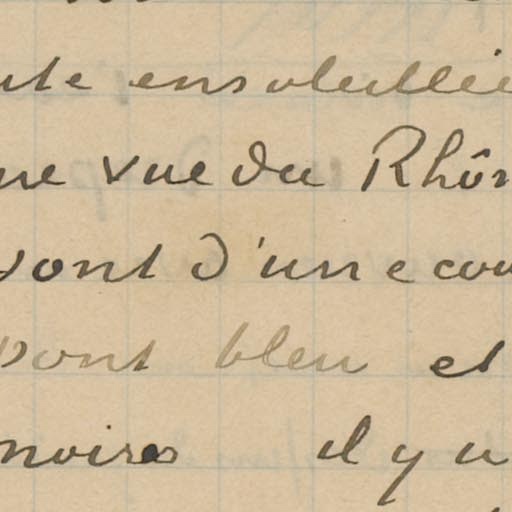 ute ensoleillée
ne vue du Rhôn
sont d'une cou
pont bleu et
noires il y a